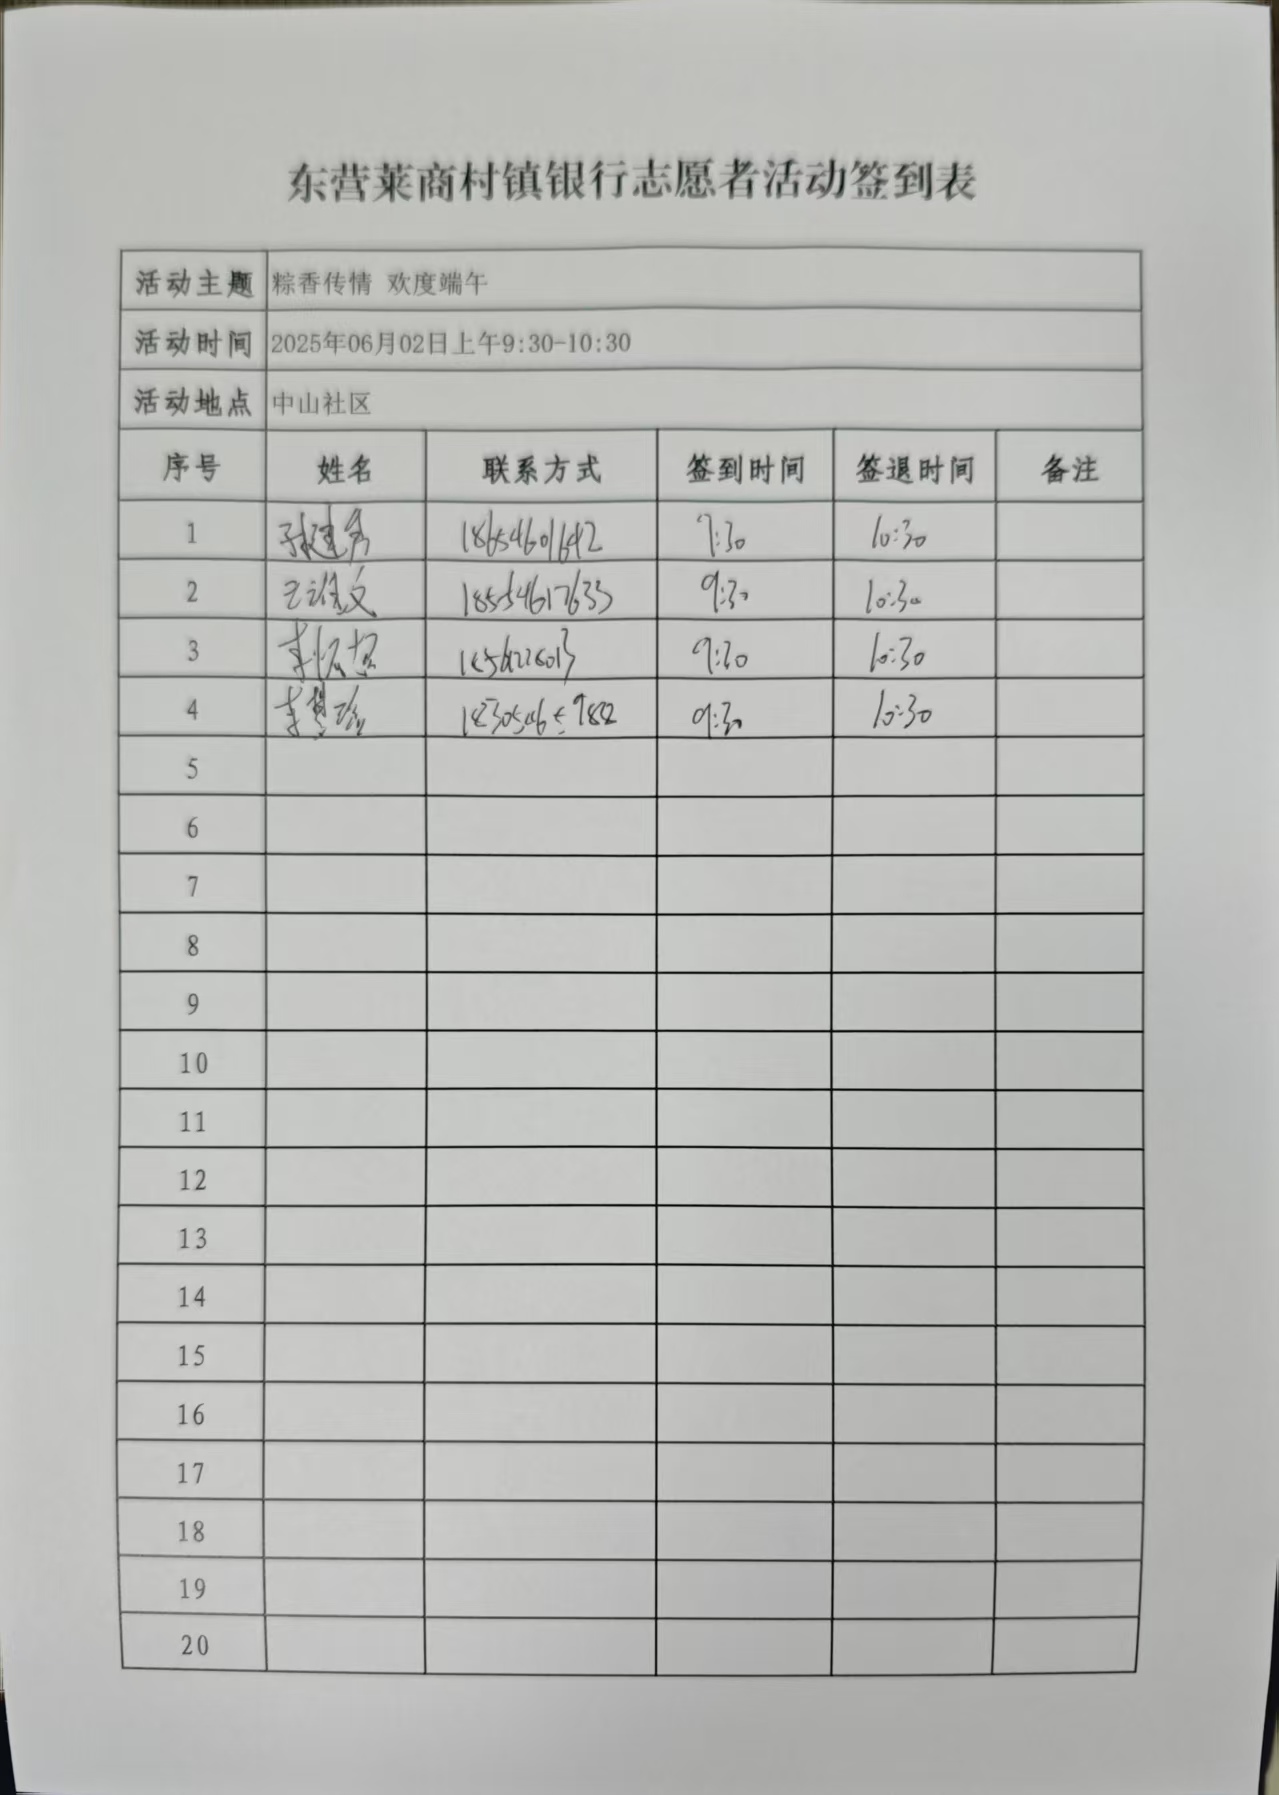 东营莱商村镇银行志愿者活动签到表
活动主题 粽香传情 欢度端午
活动时间 2025年06月02日上午9:30-10:30
活动地点 中山社区
序号 姓名 联系方式 签到时间 签退时间 备注
1 18654601642 9:30 10:30
2 18554617633 9:30 10:30
3 9:30 10:30
4 9:30 10:30
5
6
7
8
9
10
11
12
13
14
15
16
17
18
19
20